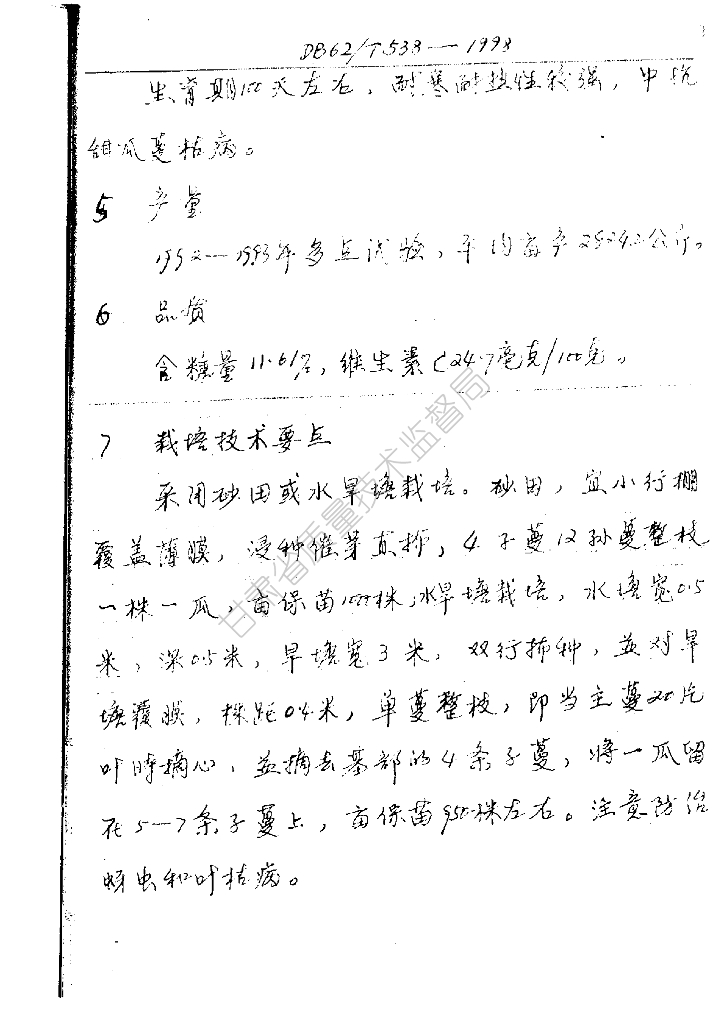 DB62/T533—1998
3
生育期100天左右，耐寒耐热性较强，中抗
甜瓜蔓枯病。
5 产量
1992—1993年多点试验，平均亩产2524.2公斤。
6 品质
含糖量11.61%，维生素C24.7毫克/100克。
7 栽培技术要点
采用砂田或水旱塘栽培。砂田，宜小行棚
覆盖薄膜，浸种催芽直播，4子蔓12孙蔓整枝
一株一瓜，亩保苗1000株，水旱塘栽培，水塘宽0.5
米，深0.5米，旱塘宽3米，双行播种，并对旱
塘覆膜，株距0.4米，单蔓整枝，即当主蔓20片
叶时摘心，并摘去基部的4条子蔓，将一瓜留
在5—7条子蔓上，亩保苗950株左右。注意防治
蚜虫和叶枯病。
甘肃省质量技术监督局